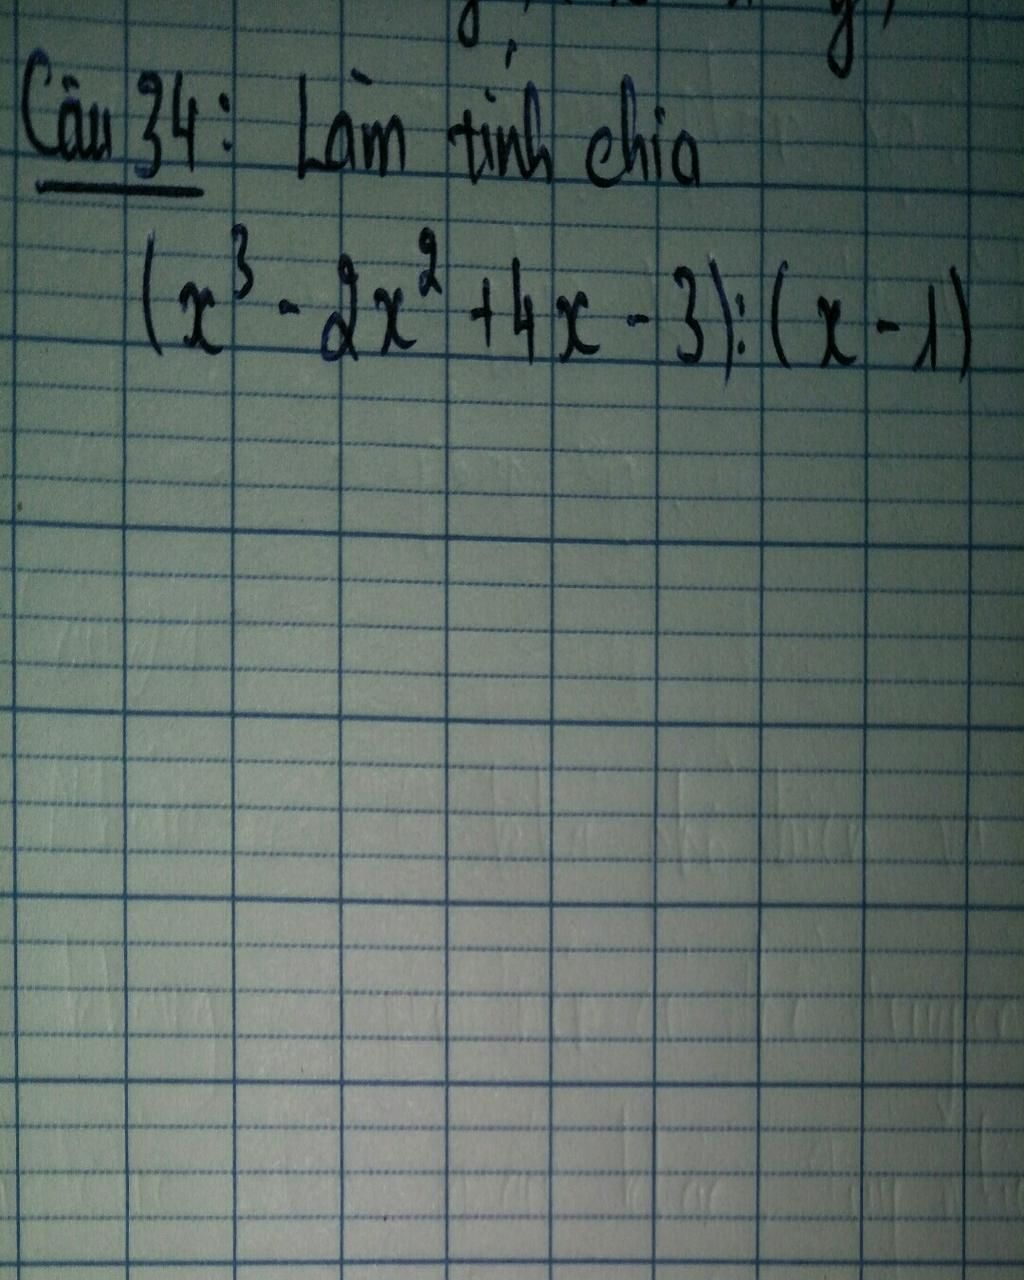 Câu 34: Làm tính chia
(x³ - 2x² + 4x - 3) : (x - 1)